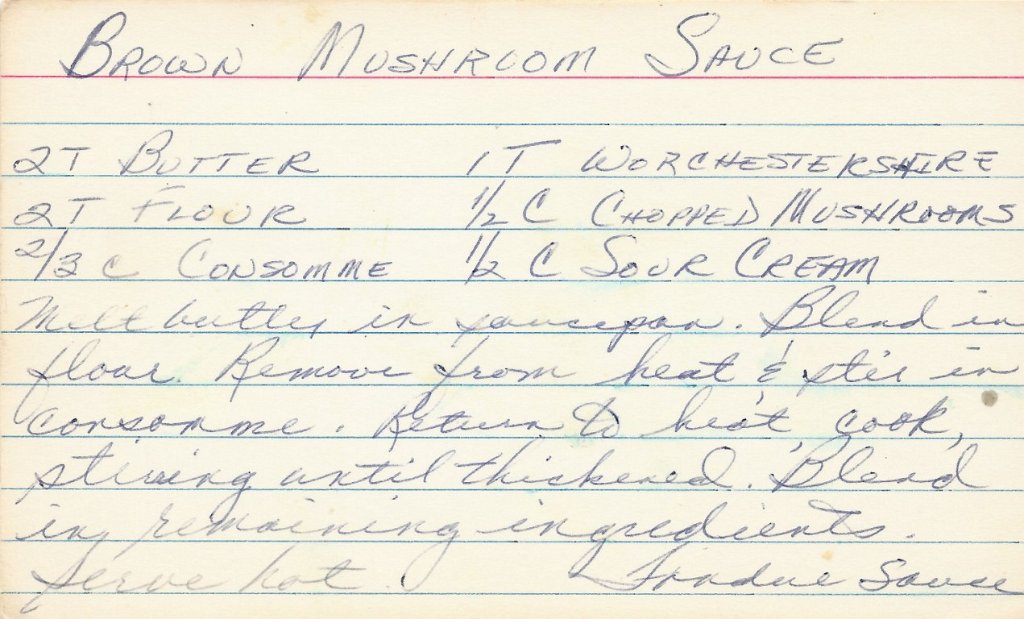 Brown Mushroom Sauce
2T Butter 1T Worchestershire
2T Flour 1/2 C Chopped Mushrooms
2/3 c Consomme 1/2 C Sour Cream
Melt butter in saucepan. Blend in
flour. Remove from heat & stir in
consomme. Return to heat, cook,
stiring until thickened. Blend
in remaining ingredients.
Serve hot. Fondue Sauce